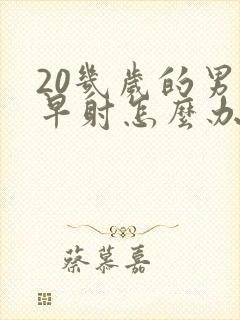 20幾歲的男
早射怎麼办
蔡慕嘉